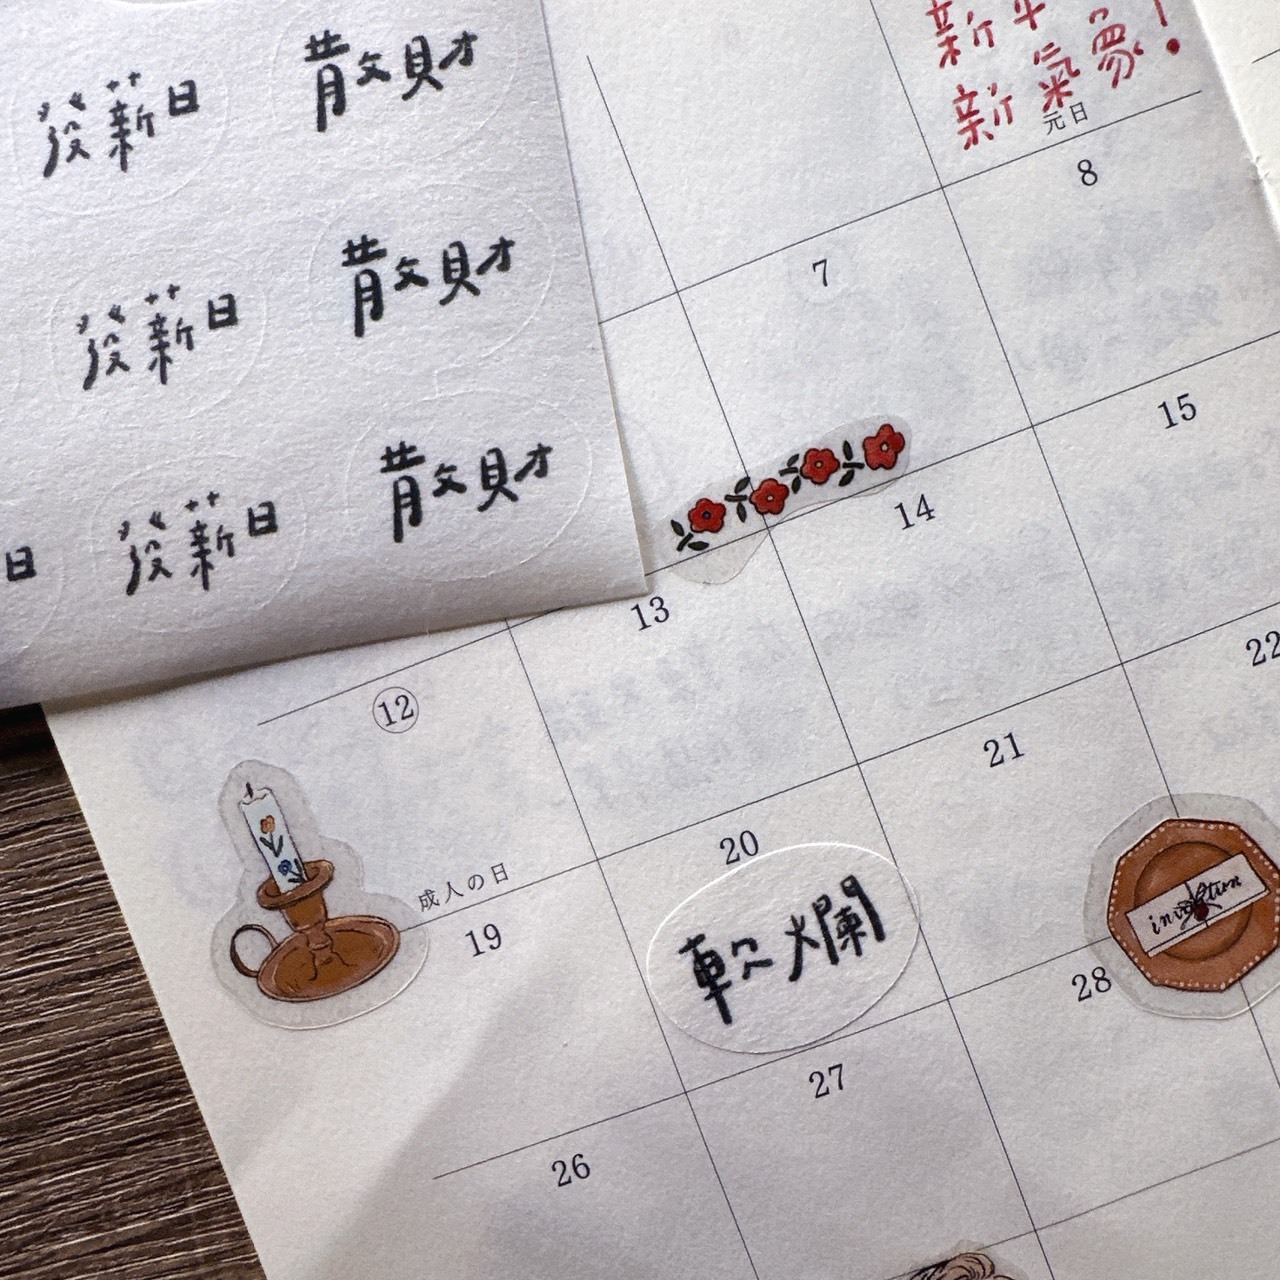 發薪日 散財
發薪日 散財
日 發薪日 散財
新年
新氣象!
元日
7 8
12 13 14 15
成人の日
19 20 21 22
軟爛
26 27 28